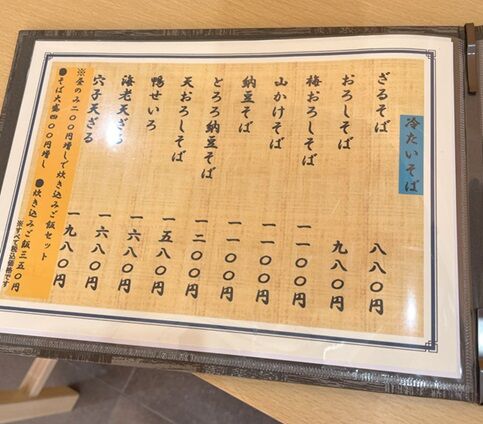 冷たいそば
ざるそば 八八〇円
おろしそば 九八〇円
梅おろしそば 一一〇〇円
山かけそば 一一〇〇円
納豆そば 一一〇〇円
とろろ納豆そば 一二〇〇円
天おろしそば 一五八〇円
鴨せいろ 一六八〇円
海老天ざる 一六八〇円
穴子天ざる 一九八〇円
※昼のみ二〇〇円増しで炊き込みご飯セット
●そば大盛四〇〇円増し ●炊き込みご飯三五〇円
※すべて税込価格です